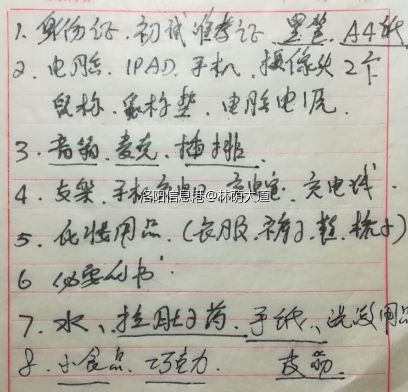 1. 身份证、初试准考证 黑笔、A4纸
2. 电脑、IPAD、手机、摄像头2个
鼠标、鼠标垫、电脑电源
3. 音箱、麦克、插排
4. 支架、手机 充电宝、充电线
洛阳信息港@林荫大道
5. 化妆用品、(衣服、裤子、鞋、梳子)
6 必要的书
7. 水、拉肚子药、手纸、洗漱用品
8. 小食品、巧克力、皮筋